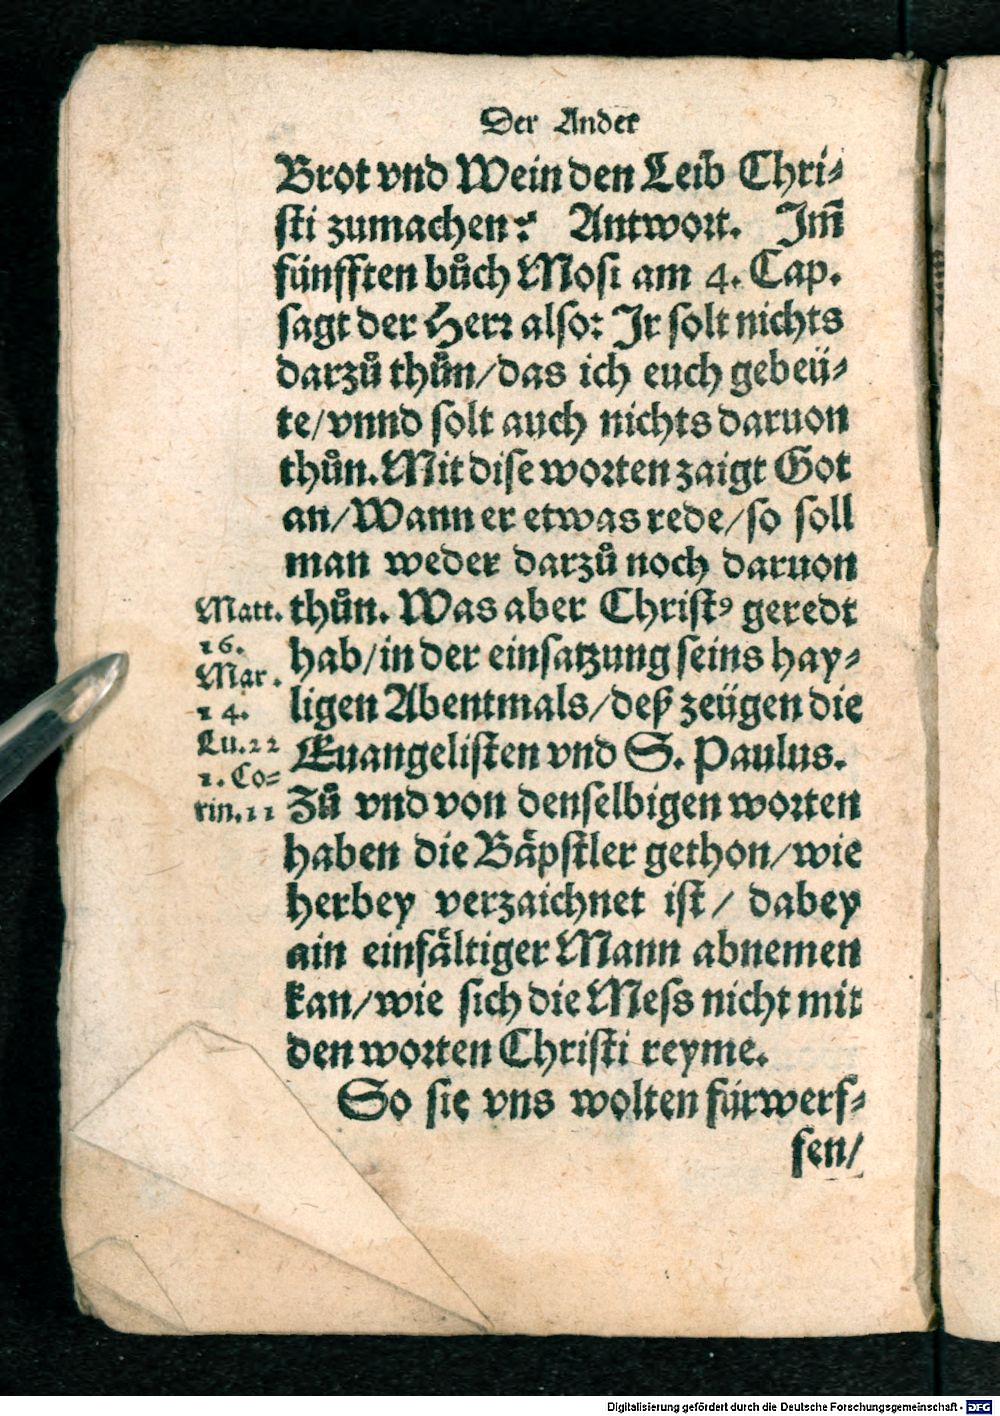 Der Ander
Brot vnd Wein den Leib Chri⸗
sti zumachen? Antwort. Jm̃
fünfften bůch Mosi am 4. Cap.
sagt der Herr also: Jr solt nichts
darzů thůn/das ich euch gebeü⸗
te/vnnd solt auch nichts daruon
thůn. Mit dise worten zaigt Got
an/Wann er etwas rede/so soll
man weder darzů noch daruon
thůn. Was aber Christꝰ geredt
hab/in der einsatzung seins hay⸗
ligen Abentmals/deß zeügen die
Euangelisten vnd S. Paulus.
Zů vnd von denselbigen worten
haben die Bäpstler gethon/wie
herbey verzaichnet ist/ dabey
ain einfältiger Mann abnemen
kan/wie sich die Mess nicht mit
den worten Christi reyme.
So sie vns wolten fürwerf⸗
fen/
Matt.
26.
Mar.
14.
Lu.22
1. Co⸗
rin.11
Digitalisierung gefördert durch die Deutsche Forschungsgemeinschaft - DFG